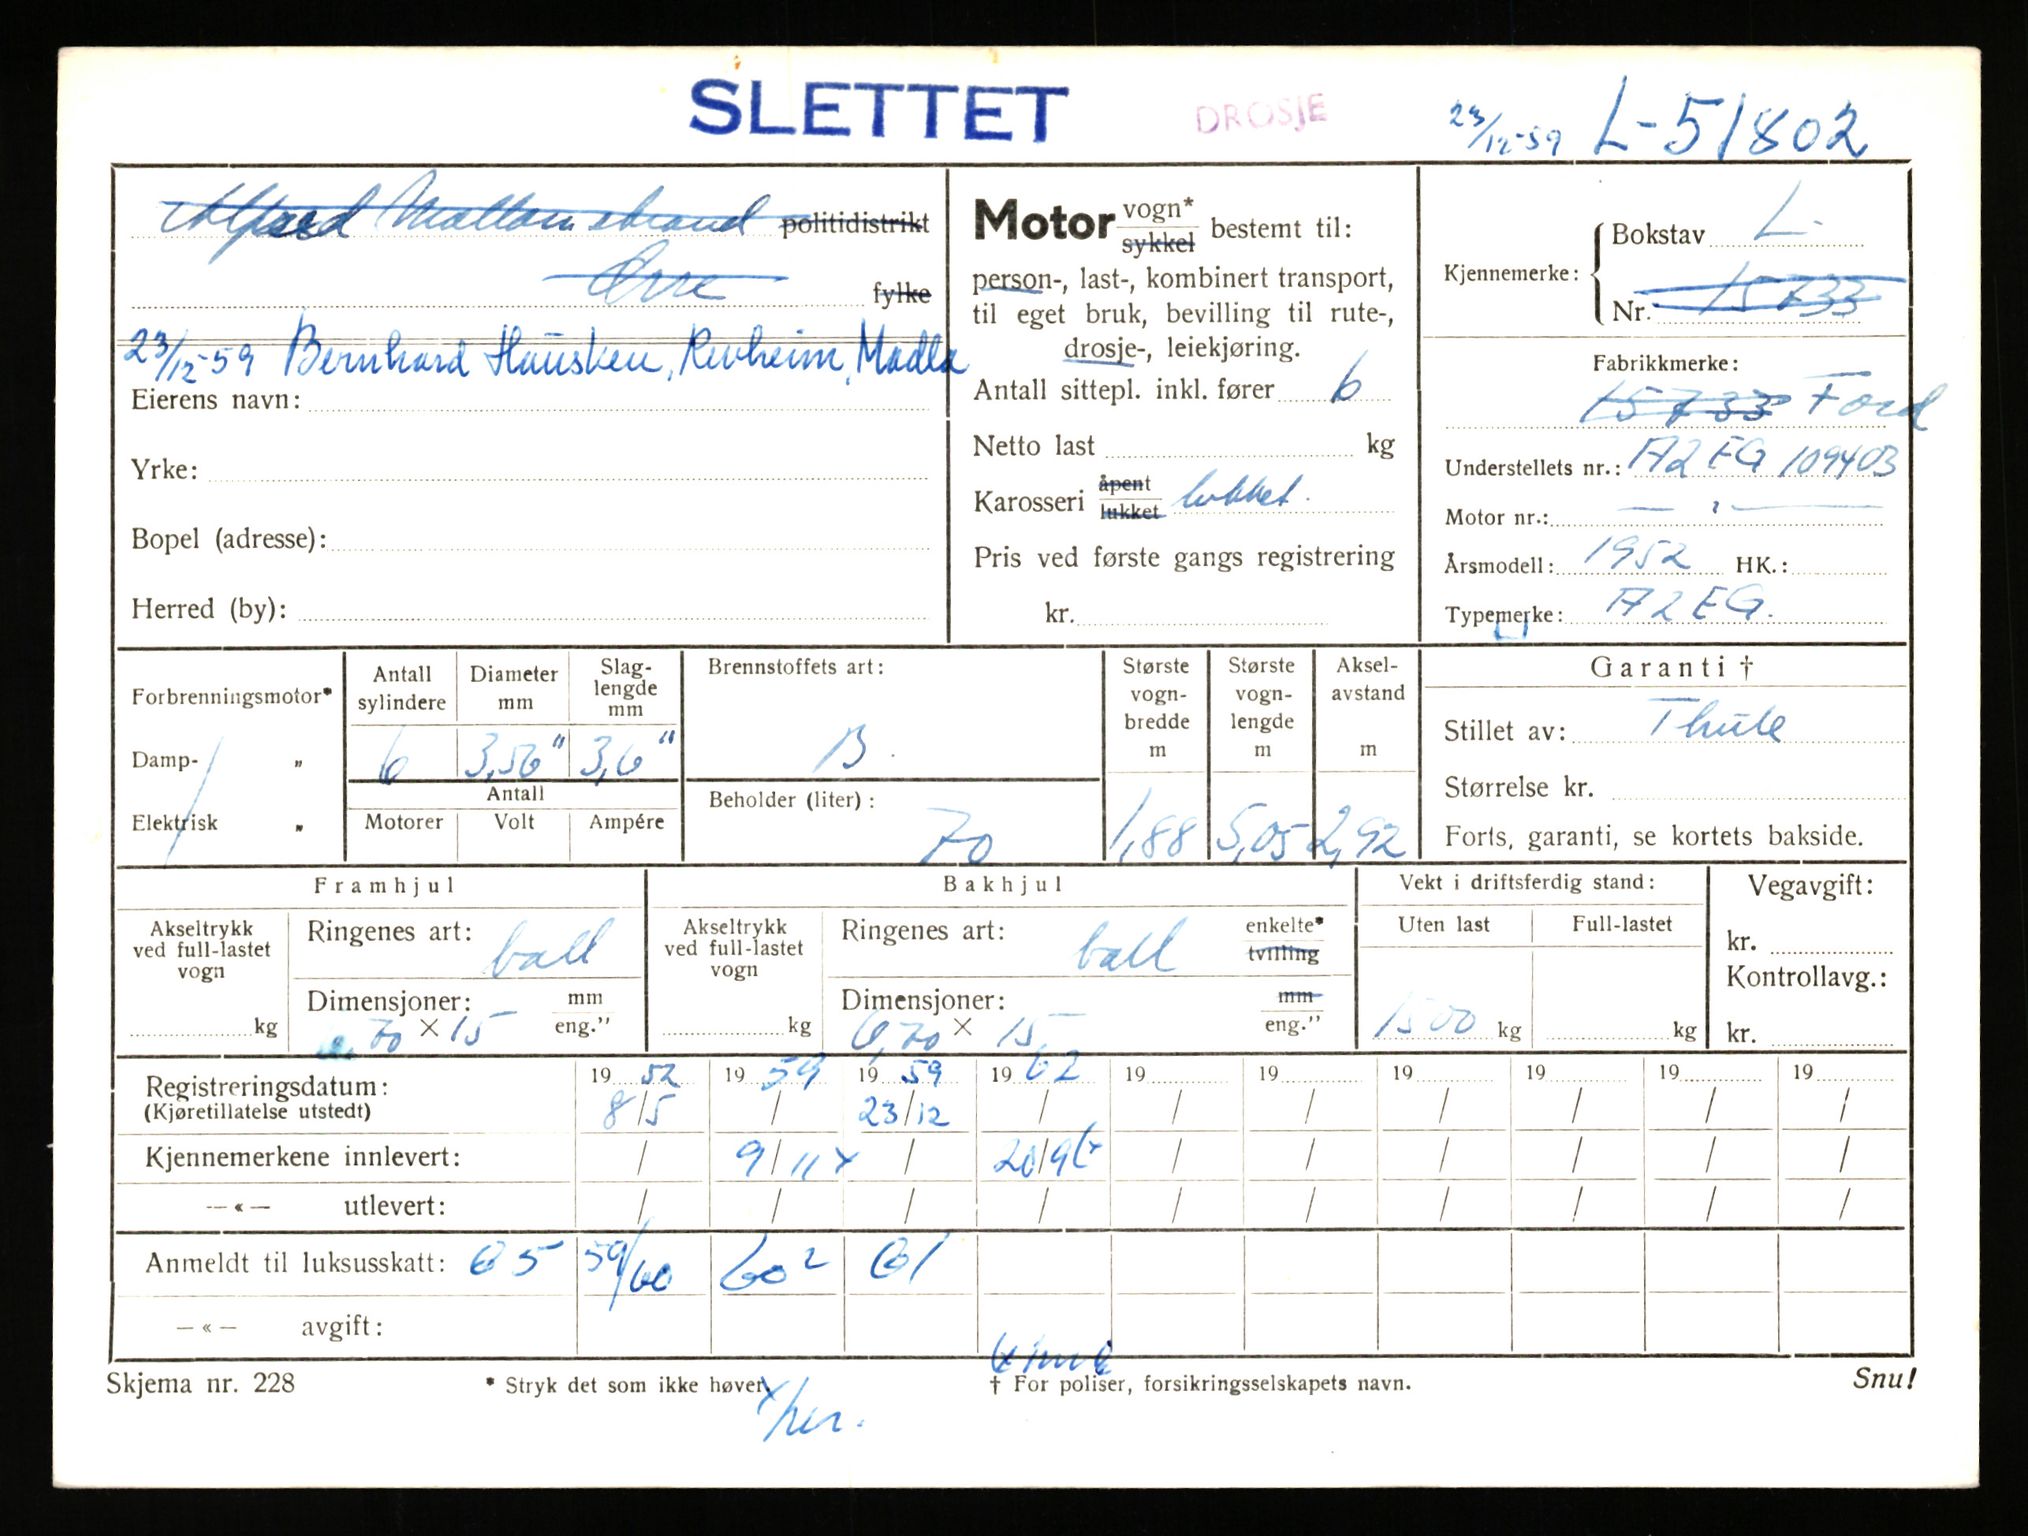 SLETTET
DROSJE
23/12-59 L-51802
Alfred politidistrikt
Orre
fylke
23/12-59 Bernhard Hausken, Revheim, Madla
Eierens navn:
Yrke:
Bopel (adresse):
Herred (by):
Motor vogn* sykkel bestemt til:
person-, last-, kombinert transport,
til eget bruk, bevilling til rute-,
drosje-, leiekjøring.
Antall sittepl. inkl. fører 6
Netto last kg
Karosseri åpent lukket lukket
Pris ved første gangs registrering
kr.
Kjennemerke:
Bokstav L
Nr. 15733
Fabrikkmerke:
15733 Ford
Understellets nr.: A2EG 109403
Motor nr.: — " —
Årsmodell: 1952 HK.:
Typemerke: A2EG.
Forbrenningsmotor*
Damp- „
Elektrisk „
Antall sylindere
6
Diameter mm
3,56"
Slag-lengde mm
3,6"
Antall
Motorer Volt Ampére
Brennstoffets art:
B.
Beholder (liter):
70
Største vogn-bredde m
1,88
Største vogn-lengde m
5,05
Aksel-avstand m
2,92
Garanti †
Stillet av: Thule
Størrelse kr.
Forts, garanti, se kortets bakside.
Framhjul
Akseltrykk ved full-lastet vogn
kg
Ringenes art: ball
Dimensjoner: mm
6,70 × 15 eng."
Bakhjul
Akseltrykk ved full-lastet vogn
kg
Ringenes art: ball enkelte* tvilling
Dimensjoner: mm
6,70 × 15 eng."
Vekt i driftsferdig stand:
Uten last Full-lastet
1500 kg kg
Vegavgift:
kr.
Kontrollavg.:
kr.
Registreringsdatum: 19 52 19 59 19 59 19 62 19 19 19 19 19 19
(Kjøretillatelse utstedt) 8/5 / 23/12 / / / / / / /
Kjennemerkene innlevert: / 9/11 x / 20/9 x / / / / / /
— « — utlevert: / / / / / / / / / /
Anmeldt til luksusskatt: 65 59/60 60² 61
— « — avgift:
Skjema nr. 228
* Stryk det som ikke høver.
† For poliser, forsikringsselskapets navn.
Snu!
x/her.